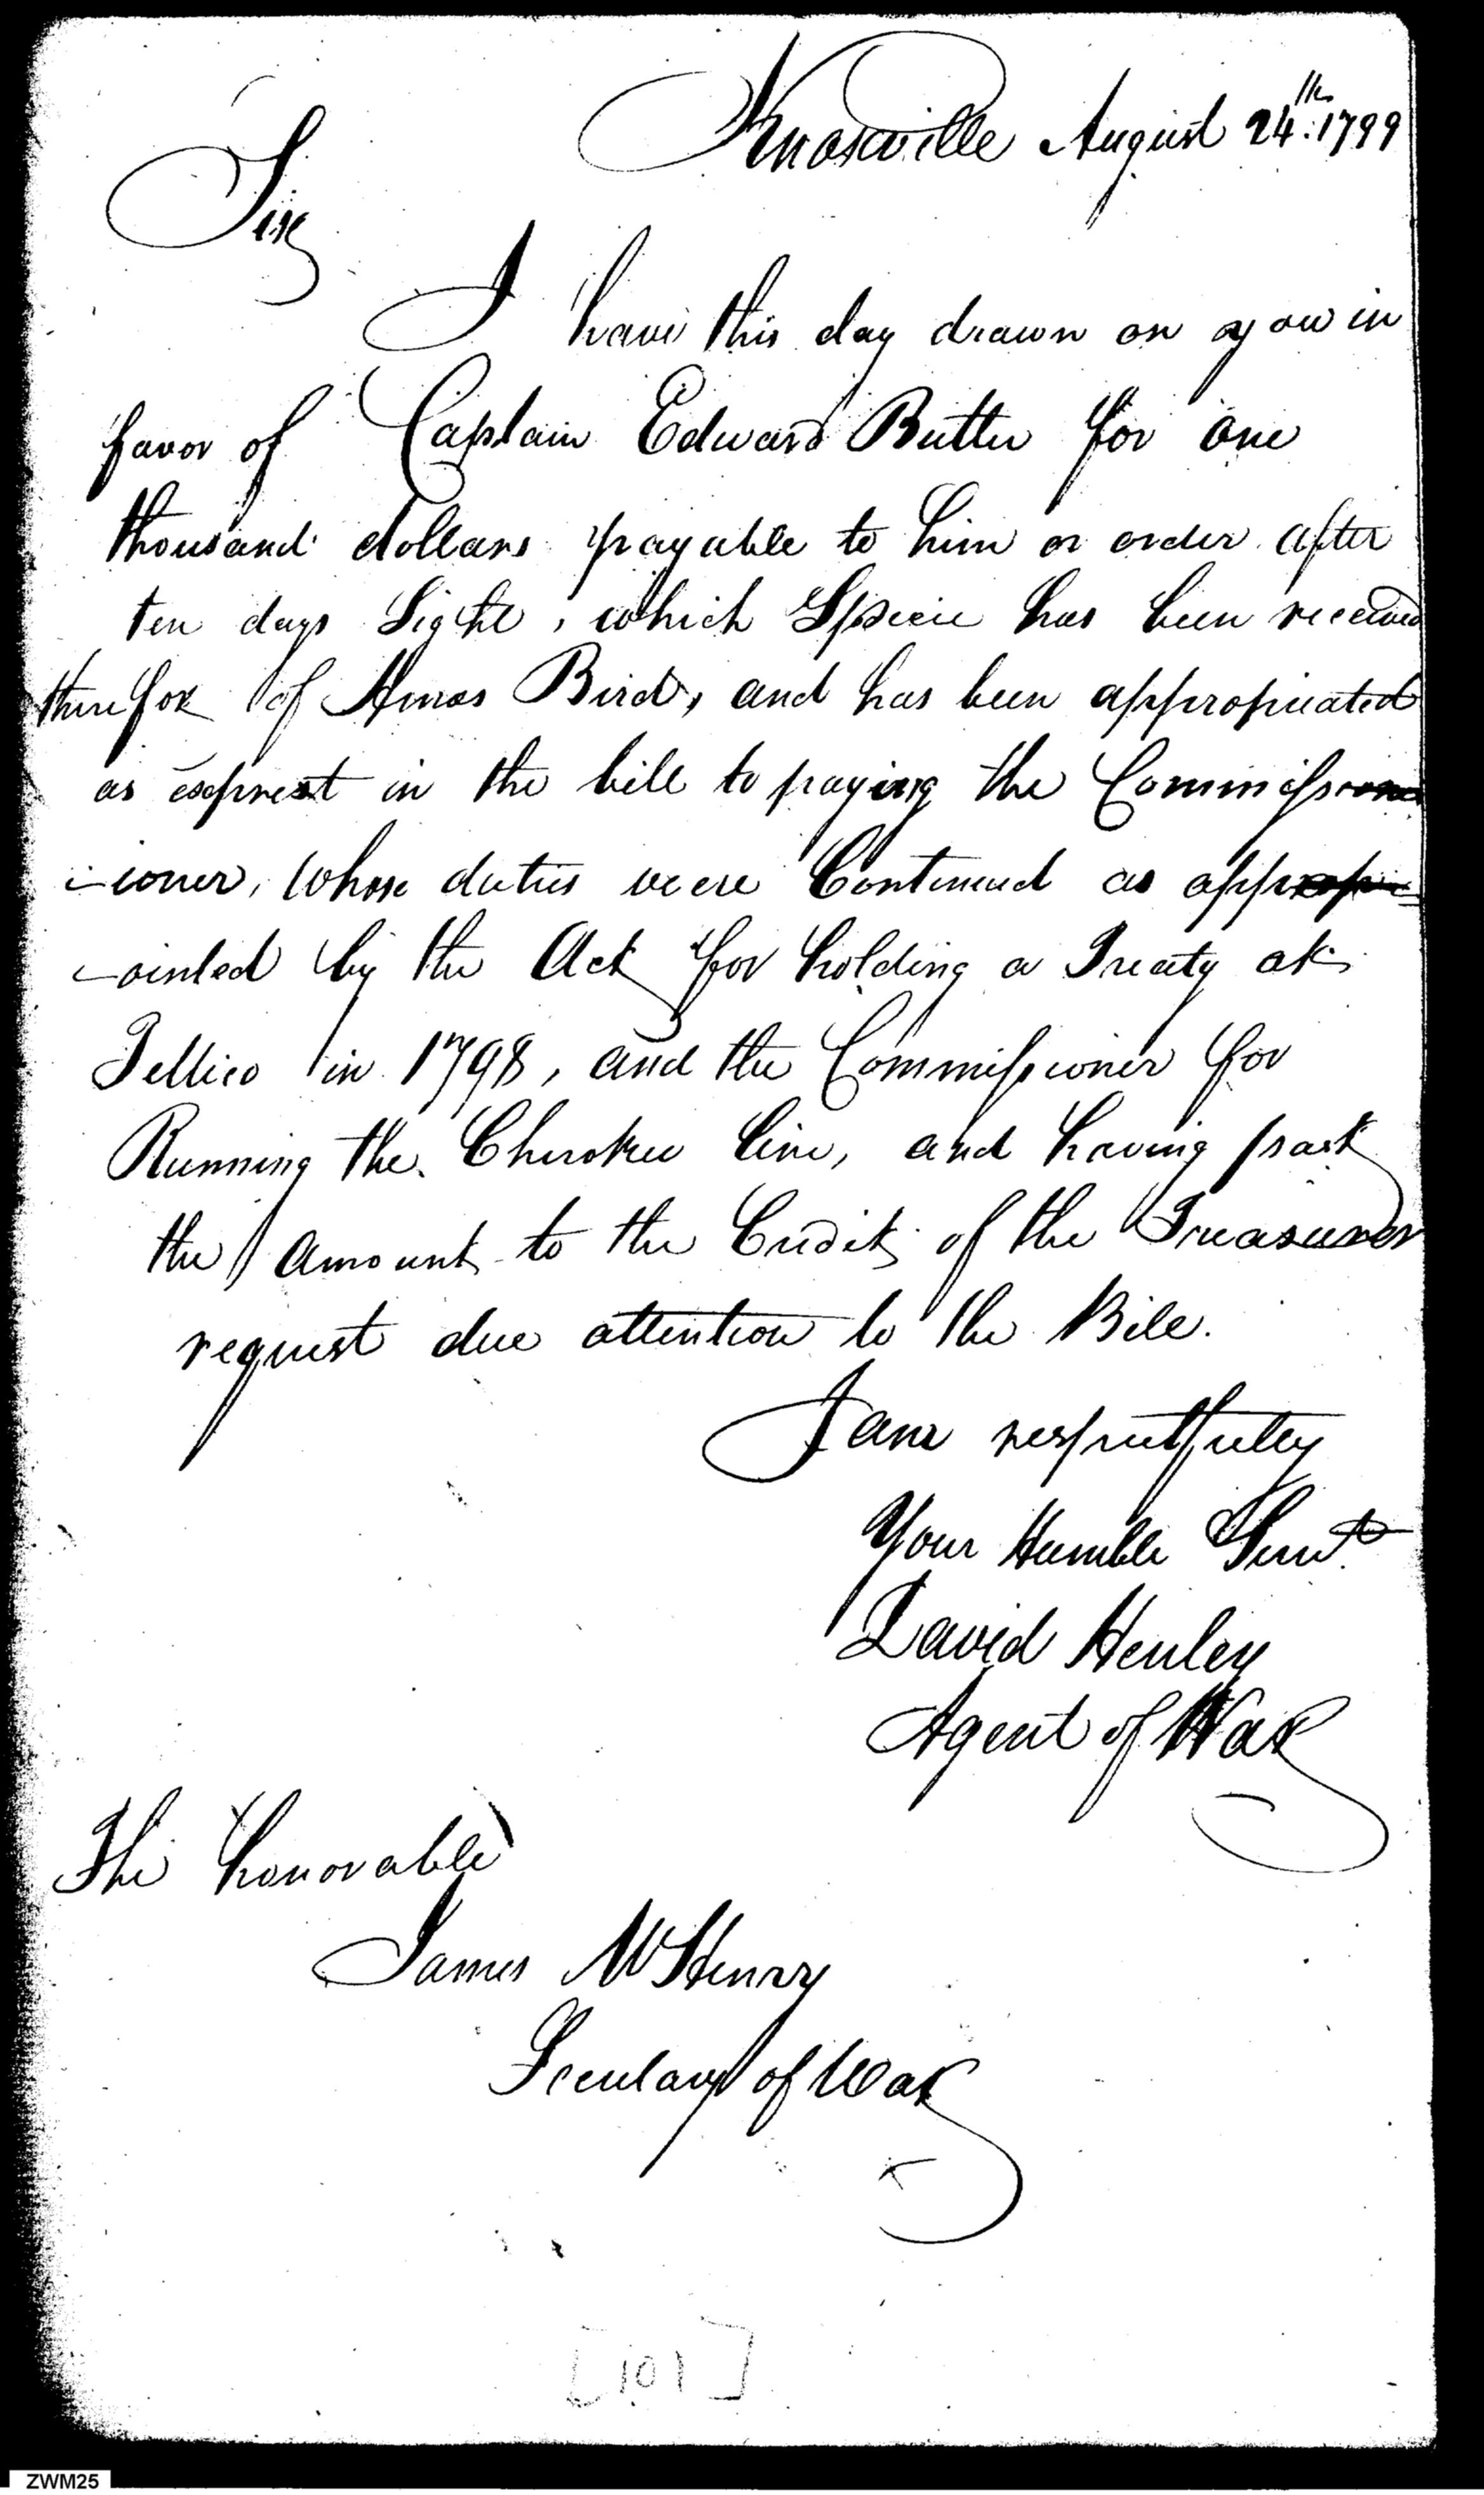 Knoxville August 24th. 1799
Sir
I have this day drawn on you in
favor of Captain Edward Butler for one
thousand dollars payable to him or order after
ten days Sight, which Specie has been received
therefor of Amos Bird, and has been appropriated
as exprest in the bill to paying the Commission
-ioner, whose duties were Continued as app
-ointed by the Act for holding a Treaty at
Tellico in 1798, and the Commissioner for
Running the Cherokee line, and having past
the amount to the Credit of the Treasurer
request due attention to the Bill.
I am respectfully
Your Humble Servt.
David Henley
Agent of War
The honorable
James McHenry
Secretary of War
[101]
ZWM25